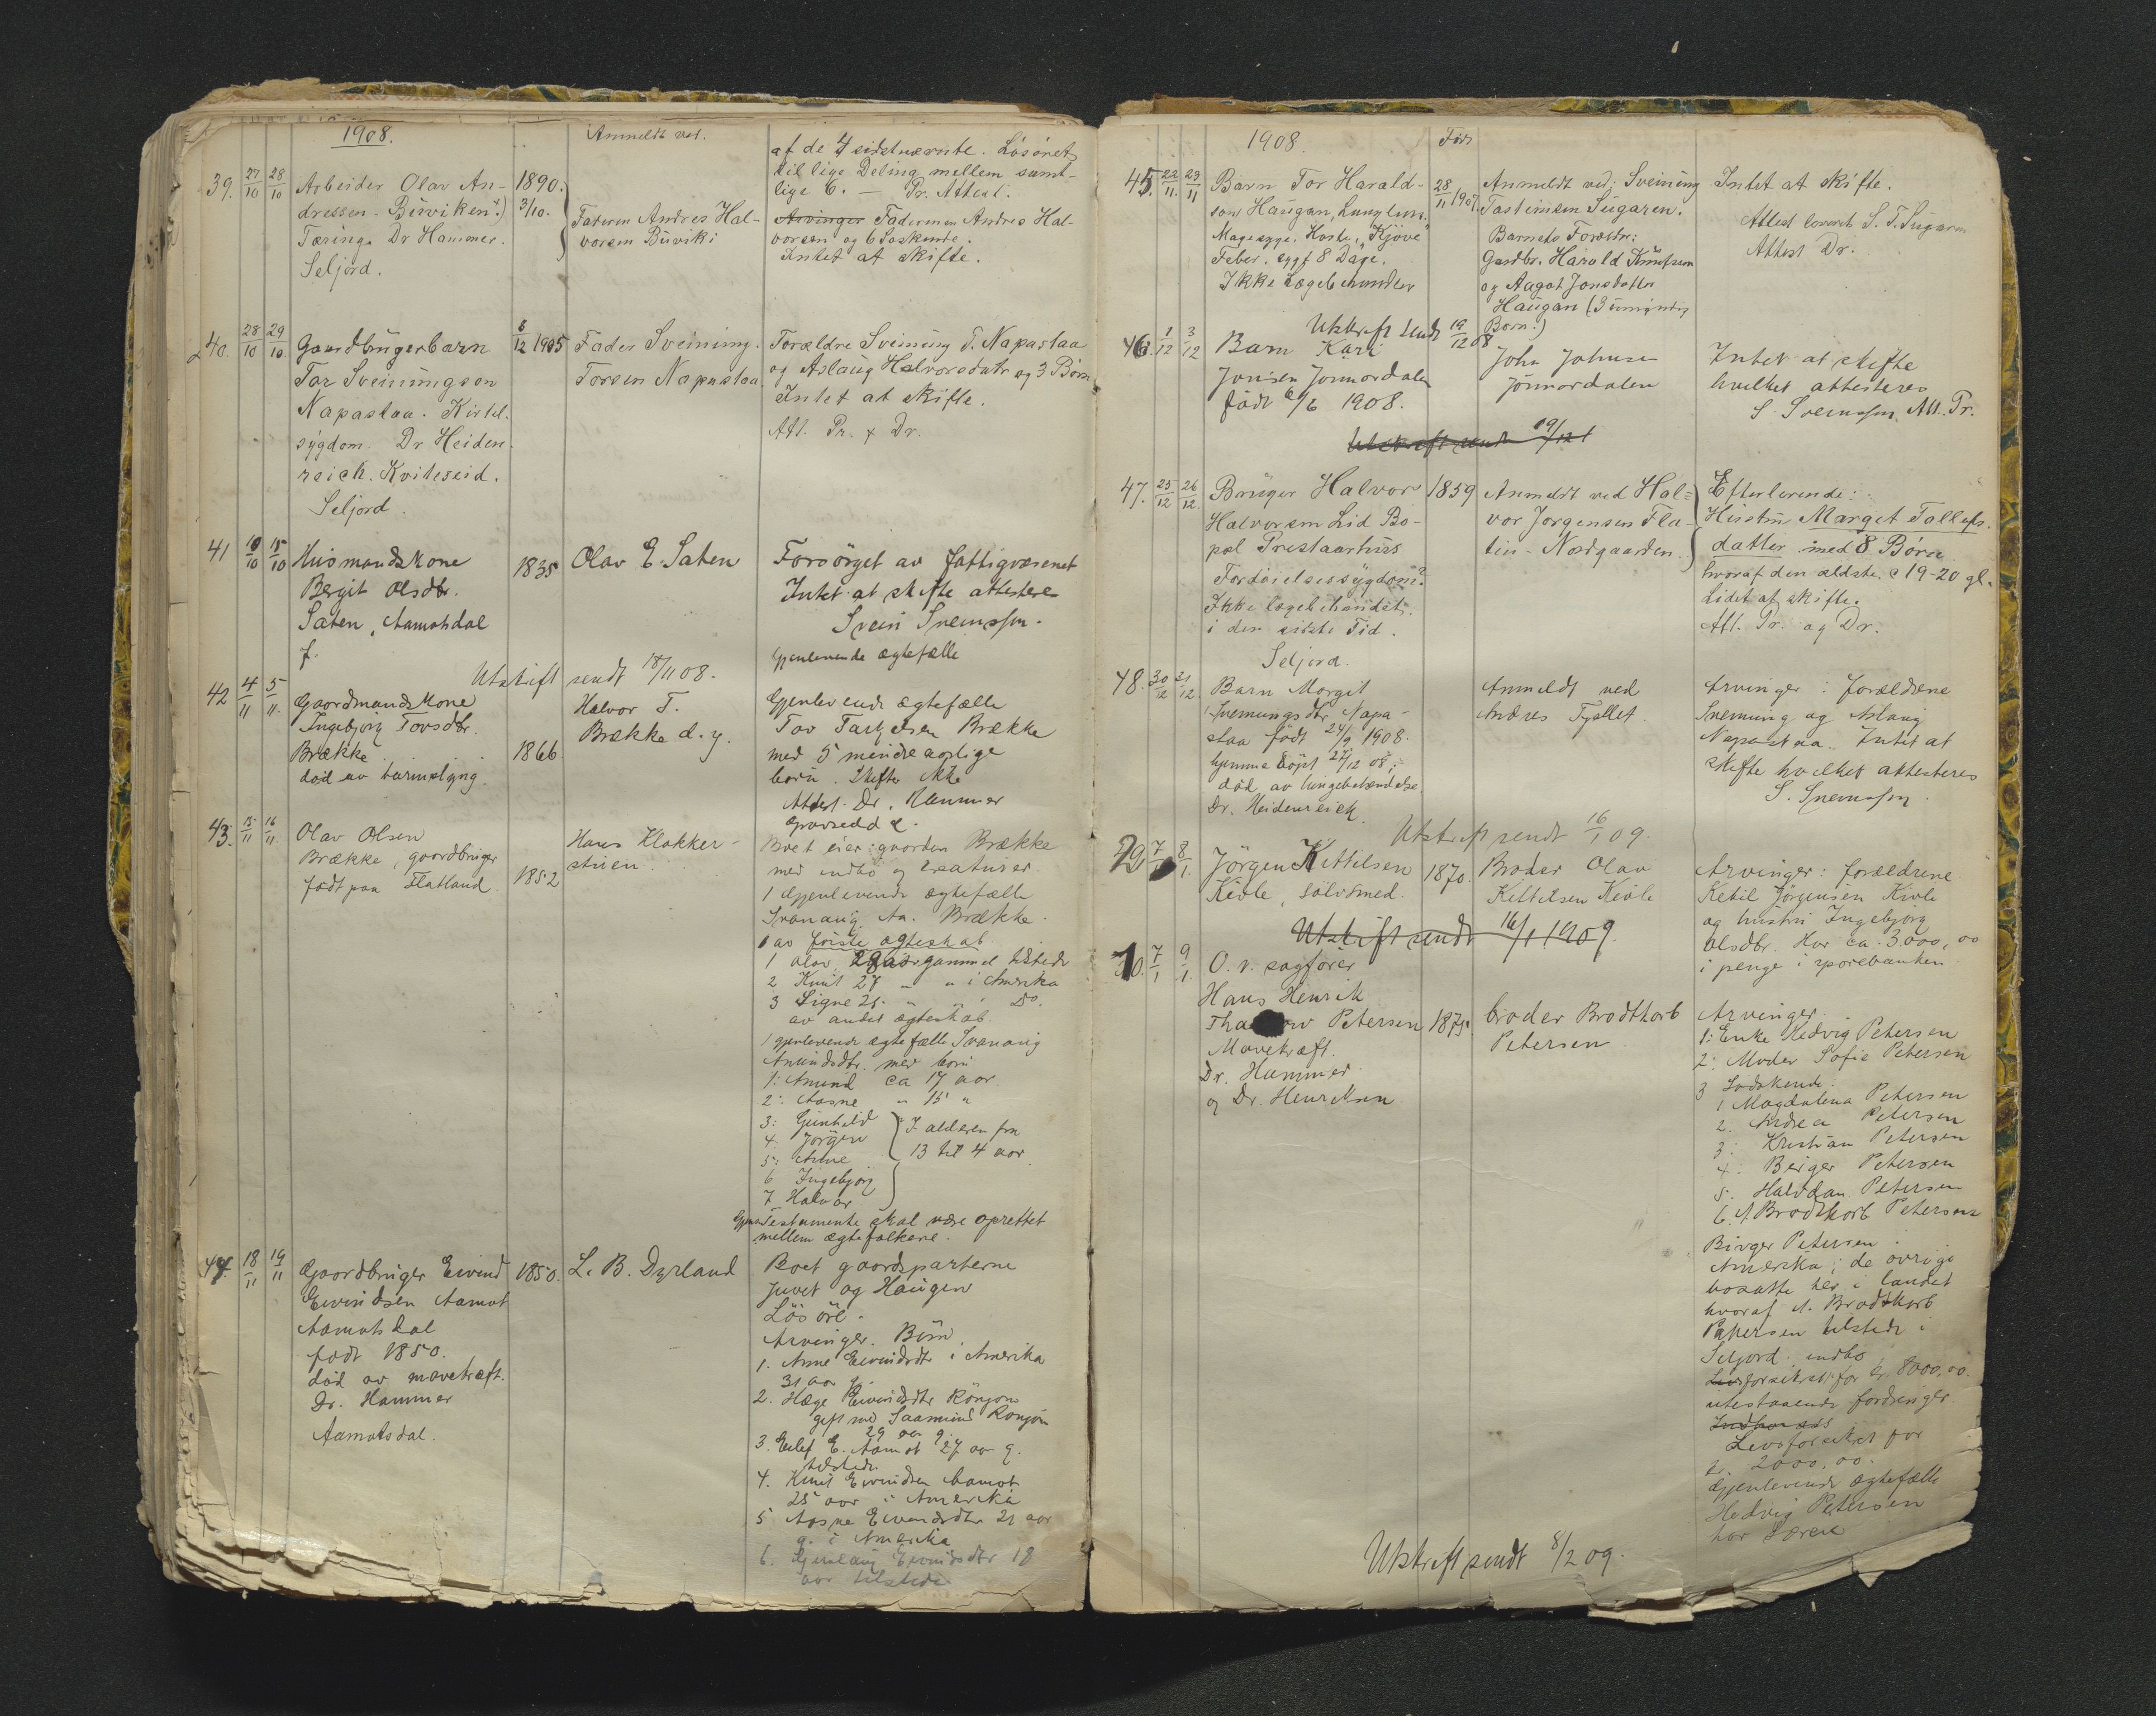 1908.
Anmeldt ved.
af de 4 sidstnævnte. Lösöret
til lige Deling mellem samt-
lige 6. — Pr. Attest.
39. 27/10 28/10 Arbeider Olav An- 1890.
dressen - Büviken.) 3/10.
Tæring. Dr Hammer.
Seljord.
Faderen Andres Hal-
vorsen Büviki
Arvinger Faderen Andres Hal-
vorsen og 6 Söskende.
Intet at skifte.
40. 28/10 29/10 Gaardbrügerbarn 8/12 1905
Tor Sveinüngson
Napastaa. Kirtel-
sygdom. Dr Heiden-
reich. Kviteseid.
Seljord.
Fader Sveinüng
Torsen Napastaa
Forældre Sveinüng T. Napastaa
og Aslaüg Halvorsdatr og 3 Börn
Intet at skifte.
Att. Pr. & Dr.
41 10/10 15/10 Husmandskone 1835
Bergit Olsdtr.
Saten, Aamotsdal
f.
Olav E. Saten
Forsörget av fattigvæsenet
Intet at skifte attesteres
Svein Sveinssen.
Gjenlevende ægtefælle
Utskrift sendt 18/11 08.
42 4/11 5/11. Gaardmandskone
Ingebjorg Tovsdtr.
Brække 1866
död av tarmslyng
Halvor T.
Brække d. y.
Gjenlevende ægtefælle
Tov Tarjeisen Brække
med 5 mindreaarige
börn. Skifter ikke
Attest Dr. Hammer
43. 15/11 16/11 Olav Olsen
Brække, gaardbruger
født paa Flatland 1852
Hans Klokker-
stüen
Boet eier: gaarden Brække
med indbo og creaturer
1 Gjenlevende ægtefælle
Svanaüg Aa. Brække.
av förste ægteskab
1 Olav 29 aar gammel tilstede
2 Knüt 27 " " i Amerika
3 Signe 25 " " Do.
av andet ægteskab
1 gjenlevende ægtefælle Svanaüg
Amündsdtr. med börn
1: Amünd ca 17 aar
2: Aasne " 15 "
3: Günhild
4. Jörgen
5: Anne
6 Ingebjorg
7 Halvor
I alderen fra
13 til 4 aar
Testamente skal være oprettet
mellem ægtefolkene.
44. 18/11 19/11 Gaardbrüger Eivind 1850.
Eivindsen Aamot
Aamotsdal
født 1850.
död av mavekræft.
Dr. Hammer
Aamotsdal.
L. B. Dyrland
Boet gaardsparterne
Juvet og Haugen
Lösöre.
Arvinger. Börn
1. Anne Eivindsdtr i Amerika
31 aar g.
2. Hæge Eivindsdtr Rönjom
gift med Saamünd Ronjom
29 aar g.
3. Eilef E. Aamot 27 aar g.
tilstede.
4. Knüt Eivindsen Aamot
25 aar i Amerika
5 Aasne Eivindsdtr 21 aar
g. i Amerika
6. Gunlaüg Eivindsdtr 18
aar tilstede
1908.
Född
45. 22/11. 23/11 Barn Tor Harald- 28/11 1907.
son Haügan,
Hoste, "Kjöve"
Feber, sygt 8 Dage.
Ikke Lægebehandlet
Anmeldt ved: Sveinüng
Tasteinsen Sügaren.
Barnets Forældr:
Gardbr. Harald Knütsen
og Aagot Jonsdatter
Haügan (3 ümyndig
Born.)
Intet at skifte.
Attest S. T. Sugaren
Attest Dr.
Utskrift sendt 19/12 08
46. 1/12 3/12 Barn Kari
Jonsen Jönnordalen
födt 6/6 1908.
John Johnsen
Jönnordalen
Intet at skifte
hvilket attesteres
S. Sveinssen. Att. Pr.
Utskrift sendt 19/12
47. 25/12 26/12. Brüger Halvor 1859
Halvorsen Lid Bo-
pæl Prestaarhüs
Fordöielsessygdom?
Ikke lægebehandlet
i den sidste Tid.
Seljord.
Anmeldt ved Hal-
vor Jorgensen Fla-
tin - Nordgaarden.
Efterlevende:
Hüstrü Marget Tallefs-
datter med 8 Börn
hvoraf den ældste. c 19-20 gl.
Lidet at skifte.
Att. Pr. og Dr.
48. 30/12 31/12 Barn Margit
Sveinungsdtr Napa-
staa født 24/9 1908.
hjemme döpt 27/12 08,
död av lungebetændelse
Dr. Heidenreich.
Anmeldt ved
Andres Tjallet
Arvinger: forældrene
Sveinung og Aslaug
Napastaa. Intet at
skifte hvilket attesteres
S. Sveinssen.
Utskrift sendt 16/1 09.
7/1 8/1. Jörgen Kittilsen 1870.
Kivle, sölvsmed.
Broder Olav
Kittilsen Kivle
Arvinger: forældrene
Ketil Jörgensen Kivle
og hustru Ingebjorg
Olsdtr. Har ca. 3000,00
i penge i sparebanken
Utskrift sendt 16/1 1909.
7/1 9/1. O. r. sagfører
Hans Henrik
Petersen 1875.
Mavekræft.
Dr. Hammer
og Dr. Henriksen
broder Brodtkorb
Petersen
Arvinger
1: Enke Hedvig Petersen
2: Moder Sofie Petersen
3 Södskende:
1 Magdalena Petersen
2. Andrea Petersen
3: Kristian Petersen
4. Birger Petersen
5. Halvdan Petersen
6. A Brodtkorb Petersen
Birger Petersen i
Amerika; de övrige
bosatte her i landet
hvoraf A. Brodtkorb
Petersen tilstede i
Seljord. indbo
forsikret for kr 8000,00.
utestaaende fordringer
Livsforsikret for
kr. 2000,00.
Gjenlevende ægtefælle
Hedvig Petersen
Utskrift sendt 8/2 09.